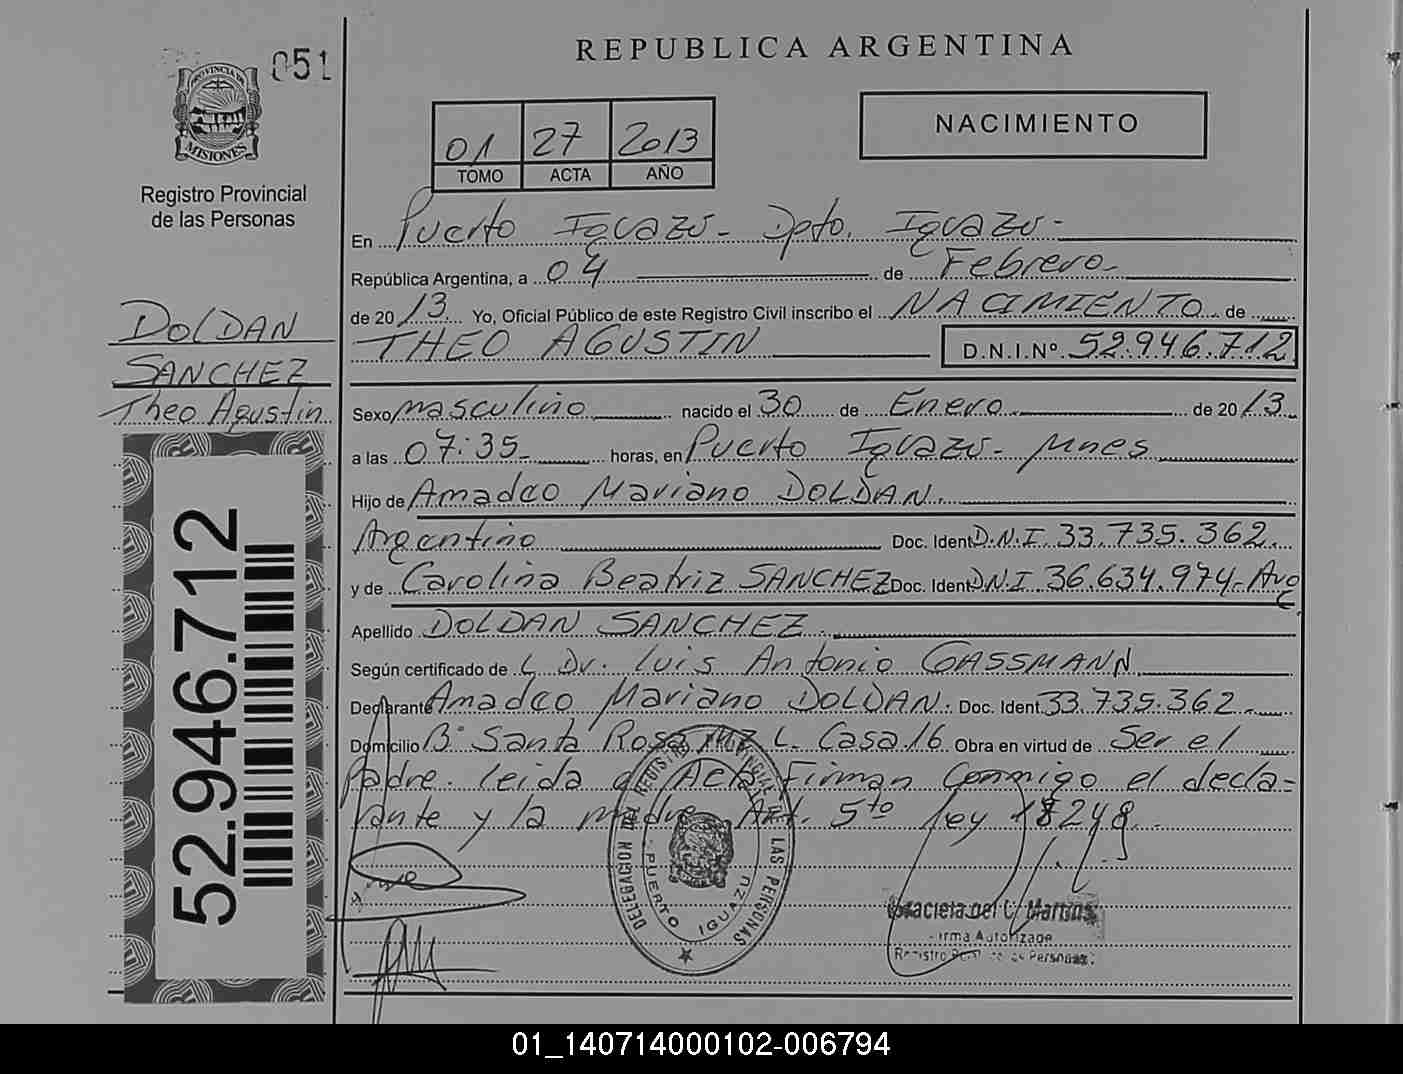 051
REPUBLICA ARGENTINA
PROVINCIA DE MISIONES
Registro Provincial
de las Personas
01 27 2013
TOMO ACTA AÑO
NACIMIENTO
En Puerto Iguazú - Dpto. Iguazú -
República Argentina, a 04 de Febrero -
de 2013 Yo, Oficial Público de este Registro Civil inscribo el NACIMIENTO de
THEO AGUSTIN D.N.I.Nº 52.946.712
DOLDAN
SANCHEZ
Theo Agustin
Sexo masculino nacido el 30 de Enero de 2013
a las 07:35 horas, en Puerto Iguazú - Mnes
Hijo de Amadeo Mariano DOLDAN.
Argentino Doc. Ident D.N.I. 33.735.362.
y de Carolina Beatriz SANCHEZ Doc. Ident D.N.I. 36.634.974- Arg
Apellido DOLDAN SANCHEZ.
Según certificado de Dr. Luis Antonio GASSMANN
Declarante Amadeo Mariano DOLDAN. Doc. Ident. 33.735.362.
Domicilio Bº Santa Rosa Mz L. Casa 16 Obra en virtud de Ser el
Padre. leida el Acta Firman Conmigo el decla-
rante y la madre Art. 5to ley 18248.
52.946.712
DELEGACION DEL REGISTRO PROVINCIAL DE LAS PERSONAS
PUERTO IGUAZU
Graciela del C. Martins
Firma Autorizada
Registro Prov. de las Personas
01_140714000102-006794